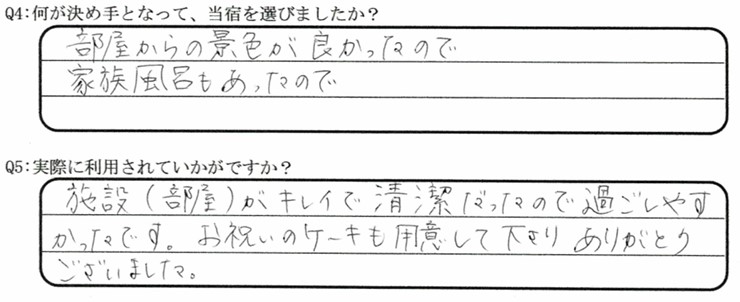 Q4:何が決め手となって、当宿を選びましたか？
部屋からの景色が良かったので
家族風呂もあったので
Q5:実際に利用されていかがですか？
施設(部屋)がキレイで清潔だったので過ごしやす
かったです。お祝いのケーキも用意して下さり ありがとう
ございました。